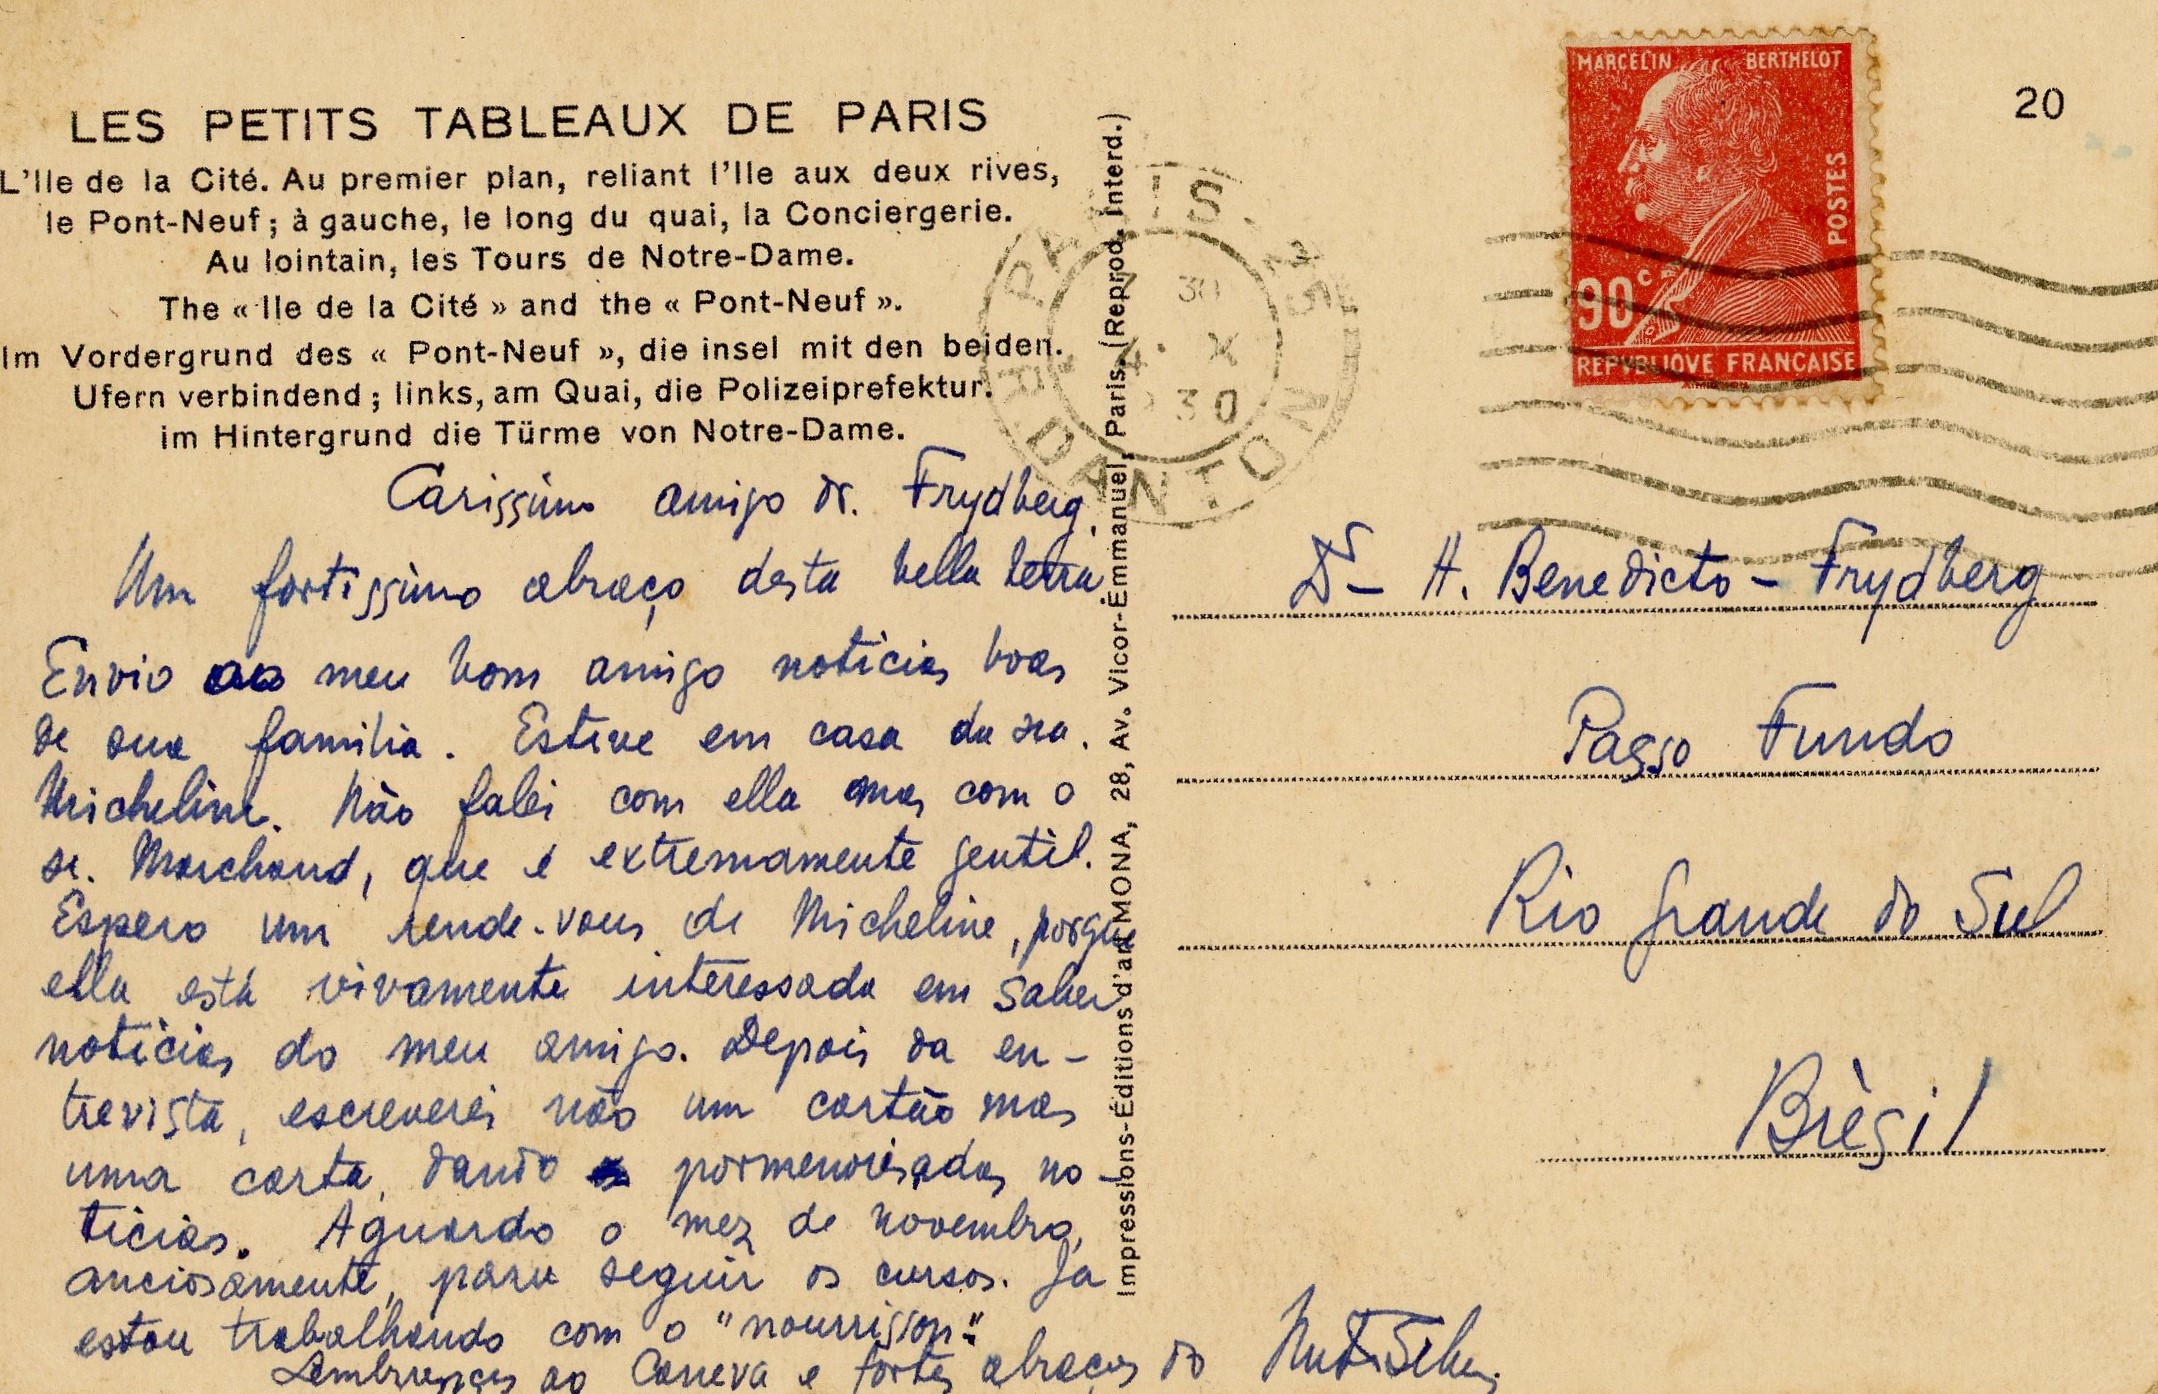 LES PETITS TABLEAUX DE PARIS
L'Ile de la Cité. Au premier plan, reliant l'Ile aux deux rives,
le Pont-Neuf ; à gauche, le long du quai, la Conciergerie.
Au lointain, les Tours de Notre-Dame.
The « Ile de la Cité » and the « Pont-Neuf ».
Im Vordergrund des « Pont-Neuf », die insel mit den beiden.
Ufern verbindend ; links, am Quai, die Polizeiprefektur.
im Hintergrund die Türme von Notre-Dame.
Carissimo amigo Dr. Frydberg.
Um fortissimo abraço desta bella terra
Envio ao meu bom amigo noticias boas
de sua familia. Estive em casa da sra.
Micheline. Não falei com ella mas com o
sr. Marchand, que é extremamente gentil.
Espero um rende-vous de Micheline, porque
ella está vivamente interessada em saber
noticias do meu amigo. Depois da en-
trevista, escreverei não um cartão mas
uma carta, dando pormenorisadas no-
ticias. Aguardo o mez de novembro,
anciosamente, para seguir os cursos. Ja
estou trabalhando com o "nourrisson"
Lembranças ao Caneva e fortes abraços do
Impressions-Éditions d'art MONA, 28, Av. Vicor-Emmanuel, Paris. (Reprod. Interd.)
PARIS 25
R. DANTON
30
4 X
30
MARCELIN BERTHELOT
POSTES
90c
REPVBLIQVE FRANCAISE
20
Dr H. Benedicto - Frydberg
Passo Fundo
Rio Grande do Sul
Brèsil